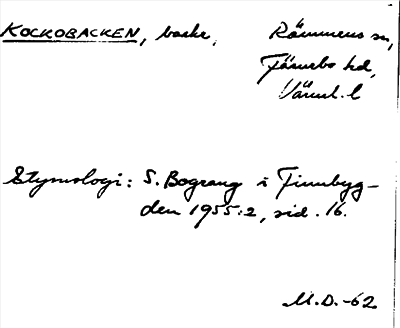 KOCKOBACKEN, backe, Rämmens sn,
Färnebo hd,
Värml. l
Etymologi: S. Bograng i Finnbyg-
den 1955:2, sid. 16.
M.D. -62